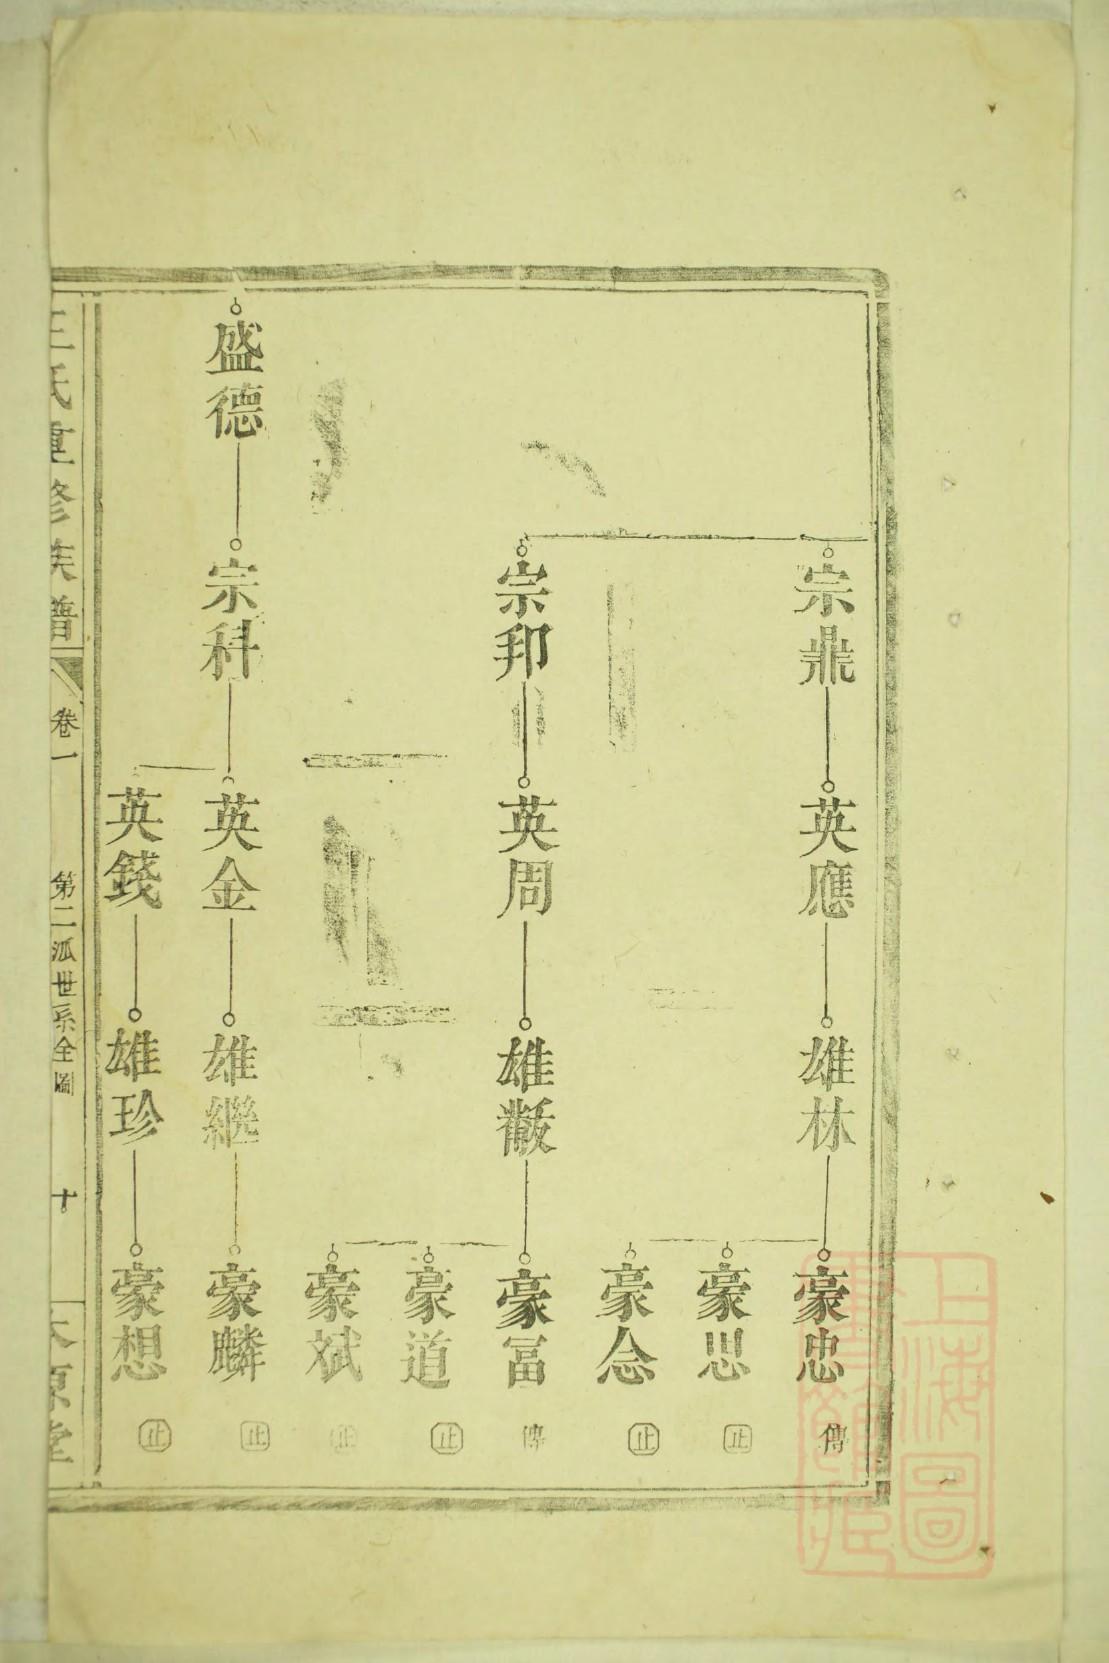 宗鼎
英應
雄林
豪忠
傳
豪思
止
豪念
止
宗邦
英周
雄黻
豪冨
傳
豪道
止
豪斌
止
盛德
宗科
英金
雄繼
豪麟
止
英錢
雄珍
豪想
止
王氏重修族譜
卷一
第二派世系全圖
十
太原堂
上海圖
書館藏